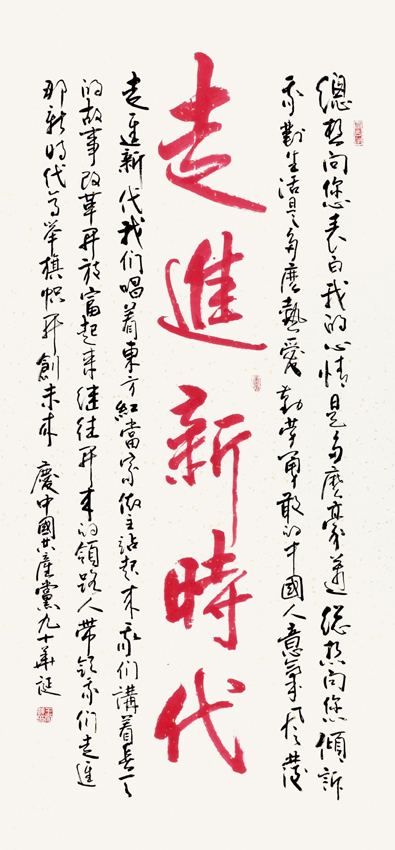 總想向您表白我的心情是多麼豪邁總想向您傾訴
我對生活是多麼熱愛勤勞勇敢的中國人意氣風發
走進新時代
走進新代我们唱着東方紅當家做主站起来我们講着春天
的故事改革开放富起来继往开来的領路人带领我们走進
那新时代高举旗幟开創未来 慶中國共產黨九十華誕